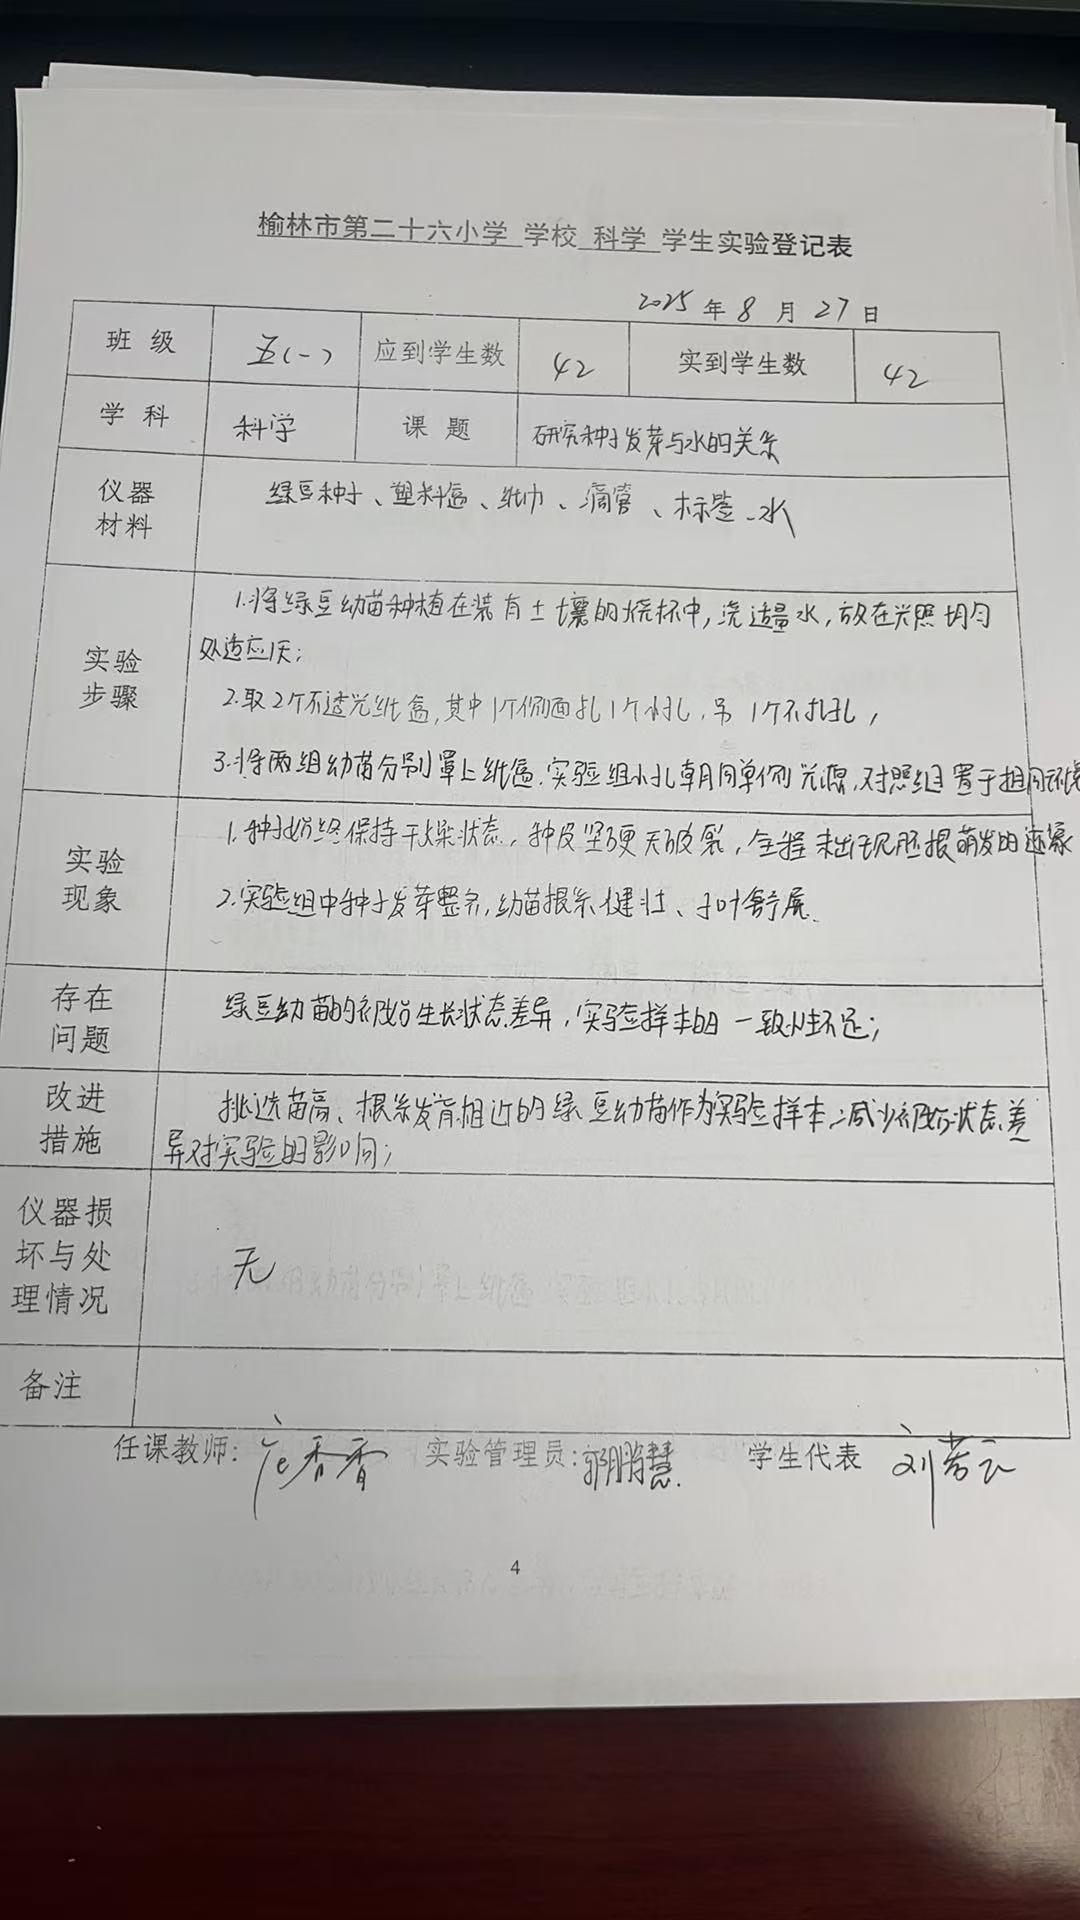 榆林市第二十六小学 学校 科学 学生实验登记表
2025 年 8 月 27 日
班 级 五(一) 应到学生数 42 实到学生数 42
学 科 科学 课 题 研究种子发芽与水的关系
仪器
材料
绿豆种子、塑料盒、纸巾、滴管、标签、水
实验
步骤
1.将绿豆幼苗种植在装有土壤的烧杯中,浇适量水,放在光照均匀
处适应1天;
2.取2个不透光纸盒,其中1个侧面扎1个小孔,另1个不扎孔,
3.将两组幼苗分别罩上纸盒.实验组小孔朝向单侧光源,对照组置于相同环境
实验
现象
1.种子始终保持干燥状态,种皮坚硬无破裂,全程未出现胚根萌发的迹象
2.实验组中种子发芽整齐,幼苗根系健壮、子叶舒展.
存在
问题
绿豆幼苗的初始生长状态差异,实验样本的一致性不足;
改进
措施
挑选苗高、根系发育相近的绿豆幼苗作为实验样本,减少初始状态差
异对实验的影响;
仪器损
坏与处
理情况
无
备注
任课教师: 香香 实验管理员: 郭鹏慧. 学生代表 刘芸
4